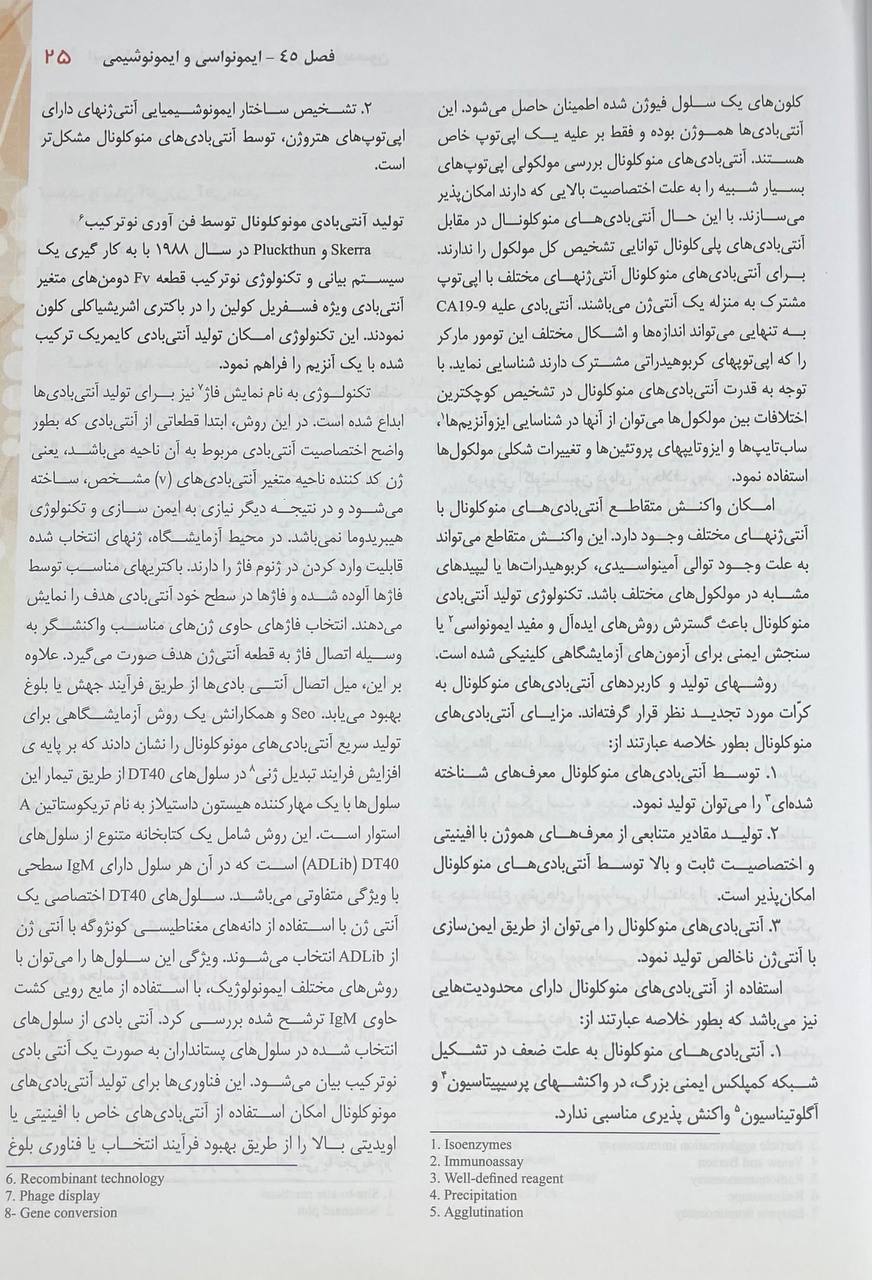 فصل ٤٥ - ایمونواسی و ایمونوشیمی ۲۵
کلون‌های یک سلول فیوژن شده اطمینان حاصل می‌شود. این
آنتی‌بادی‌ها هموژن بوده و فقط بر علیه یک اپی‌توپ خاص
هستند. آنتی‌بادی‌های منوکلونال بررسی مولکولی اپی‌توپ‌های
بسیار شبیه را به علت اختصاصیت بالایی که دارند امکان‌پذیر
می‌سازند. با این حال آنتی‌بادی‌های منوکلونال در مقابل
آنتی‌بادی‌های پلی‌کلونال توانایی تشخیص کل مولکول را ندارند.
برای آنتی‌بادی‌های منوکلونال آنتی‌ژنهای مختلف با اپی‌توپ
مشترک به منزله یک آنتی‌ژن می‌باشند. آنتی‌بادی علیه CA19-9
به تنهایی می‌تواند اندازه‌ها و اشکال مختلف این تومور مارکر
را که اپی‌توپهای کربوهیدراتی مشترک دارند شناسایی نماید. با
توجه به قدرت آنتی‌بادی‌های منوکلونال در تشخیص کوچکترین
اختلافات بین مولکول‌ها می‌توان از آنها در شناسایی ایزوآنزیم‌ها۱،
ساب‌تایپ‌ها و ایزوتایپهای پروتئین‌ها و تغییرات شکلی مولکول‌ها
استفاده نمود.
امکان واکنش متقاطع آنتی‌بادی‌های منوکلونال با
آنتی‌ژنهای مختلف وجود دارد. این واکنش متقاطع می‌تواند
به علت وجود توالی آمینواسیدی، کربوهیدرات‌ها یا لیپیدهای
مشابه در مولکول‌های مختلف باشد. تکنولوژی تولید آنتی‌بادی
منوکلونال باعث گسترش روش‌های ایده‌آل و مفید ایمونواسی۲ یا
سنجش ایمنی برای آزمون‌های آزمایشگاهی کلینیکی شده است.
روشهای تولید و کاربردهای آنتی‌بادی‌های منوکلونال به
کرّات مورد تجدید نظر قرار گرفته‌اند. مزایای آنتی‌بادی‌های
منوکلونال بطور خلاصه عبارتند از:
۱. توسط آنتی‌بادی‌های منوکلونال معرف‌های شناخته
شده‌ای۳ را می‌توان تولید نمود.
۲. تولید مقادیر متنابعی از معرف‌های هموژن با افینیتی
و اختصاصیت ثابت و بالا توسط آنتی‌بادی‌های منوکلونال
امکان‌پذیر است.
۳. آنتی‌بادی‌های منوکلونال را می‌توان از طریق ایمن‌سازی
با آنتی‌ژن ناخالص تولید نمود.
استفاده از آنتی‌بادی‌های منوکلونال دارای محدودیت‌هایی
نیز می‌باشد که بطور خلاصه عبارتند از:
۱. آنتی‌بادی‌های منوکلونال به علت ضعف در تشکیل
شبکه کمپلکس ایمنی بزرگ، در واکنشهای پرسیپیتاسیون۴ و
آگلوتیناسیون۵ واکنش پذیری مناسبی ندارد.
1. Isoenzymes
2. Immunoassay
3. Well-defined reagent
4. Precipitation
5. Agglutination
۲. تشخیص ساختار ایمونوشیمیایی آنتی‌ژنهای دارای
اپی‌توپ‌های هتروژن، توسط آنتی‌بادی‌های منوکلونال مشکل‌تر
است.
تولید آنتی‌بادی مونوکلونال توسط فن آوری نوترکیب۶
Skerra و Pluckthun در سال ۱۹۸۸ با به کار گیری یک
سیستم بیانی و تکنولوژی نوترکیب قطعه Fv دومن‌های متغیر
آنتی‌بادی ویژه فسفریل کولین را در باکتری اشریشیاکلی کلون
نمودند. این تکنولوژی امکان تولید آنتی‌بادی کایمریک ترکیب
شده با یک آنزیم را فراهم نمود.
تکنولوژی به نام نمایش فاژ۷ نیز برای تولید آنتی‌بادی‌ها
ابداع شده است. در این روش، ابتدا قطعاتی از آنتی‌بادی که بطور
واضح اختصاصیت آنتی‌بادی مربوط به آن ناحیه می‌باشد، یعنی
ژن کد کننده ناحیه متغیر آنتی‌بادی‌های (v) مشخص، ساخته
می‌شود و در نتیجه دیگر نیازی به ایمن سازی و تکنولوژی
هیبریدوما نمی‌باشد. در محیط آزمایشگاه، ژنهای انتخاب شده
قابلیت وارد کردن در ژنوم فاژ را دارند. باکتریهای مناسب توسط
فاژها آلوده شده و فاژها در سطح خود آنتی‌بادی هدف را نمایش
می‌دهند. انتخاب فاژهای حاوی ژن‌های مناسب واکنشگر به
وسیله اتصال فاژ به قطعه آنتی‌ژن هدف صورت می‌گیرد. علاوه
بر این، میل اتصال آنتی بادی‌ها از طریق فرآیند جهش یا بلوغ
بهبود می‌یابد. Seo و همکارانش یک روش آزمایشگاهی برای
تولید سریع آنتی‌بادی‌های مونوکلونال را نشان دادند که بر پایه ی
افزایش فرایند تبدیل ژنی۸ در سلول‌های DT40 از طریق تیمار این
سلول‌ها با یک مهارکننده هیستون داستیلاز به نام تریکوستاتین A
استوار است. این روش شامل یک کتابخانه متنوع از سلول‌های
DT40 (ADLib) است که در آن هر سلول دارای IgM سطحی
با ویژگی متفاوتی می‌باشد. سلول‌های DT40 اختصاصی یک
آنتی ژن با استفاده از دانه‌های مغناطیسی کونژوگه با آنتی ژن
از ADLib انتخاب می‌شوند. ویژگی این سلول‌ها را می‌توان با
روش‌های مختلف ایمونولوژیک، با استفاده از مایع رویی کشت
حاوی IgM ترشح شده بررسی کرد. آنتی بادی از سلول‌های
انتخاب شده در سلول‌های پستانداران به صورت یک آنتی بادی
نوترکیب بیان می‌شود. این فناوری‌ها برای تولید آنتی‌بادی‌های
مونوکلونال امکان استفاده از آنتی‌بادی‌های خاص با افینیتی یا
اویدیتی بالا را از طریق بهبود فرآیند انتخاب یا فناوری بلوغ
6. Recombinant technology
7. Phage display
8- Gene conversion